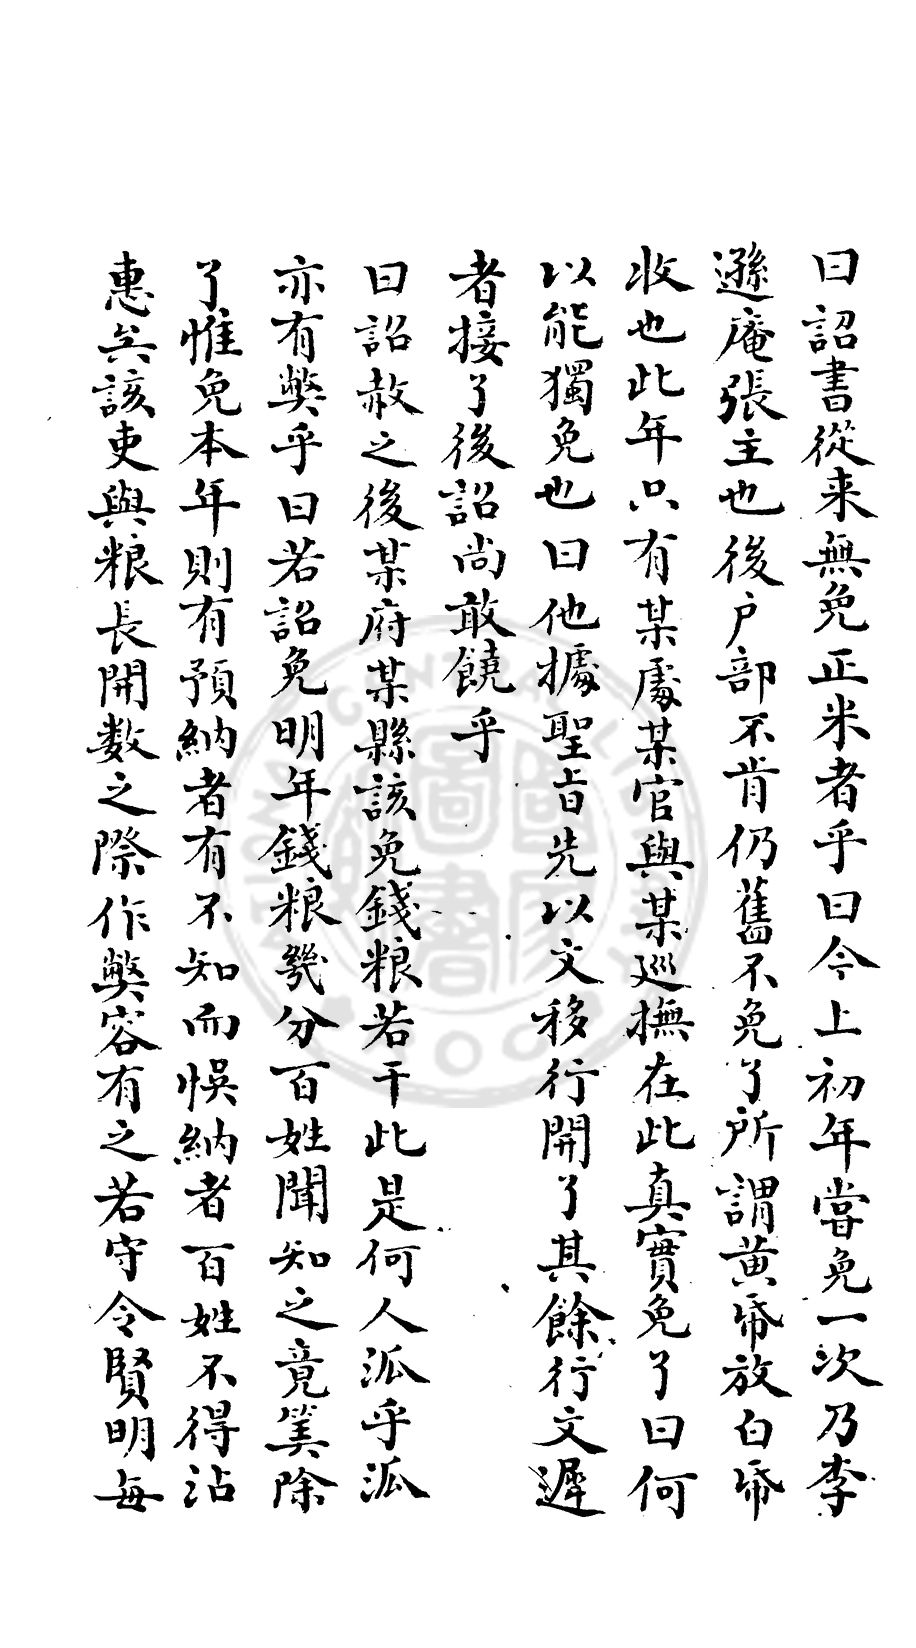 曰詔書從来無免正米者乎曰今上初年嘗免一次乃李
遜庵張主也後户部不肯仍舊不免了所謂黄帋放白帋
收也此年只有某處某官與某巡撫在此真實免了曰何
以能獨免也曰他據聖旨先以文移行開了其餘行文遲
者接了後詔尚敢饒乎
曰詔赦之後某府某縣該免錢粮若干此是何人派乎派
亦有獘乎曰若詔免明年錢粮幾分百姓聞知之竟筭除
了惟免本年則有預納者有不知而悞納者百姓不得沾
惠矣該吏與粮長開数之際作獘容有之若守令賢明每